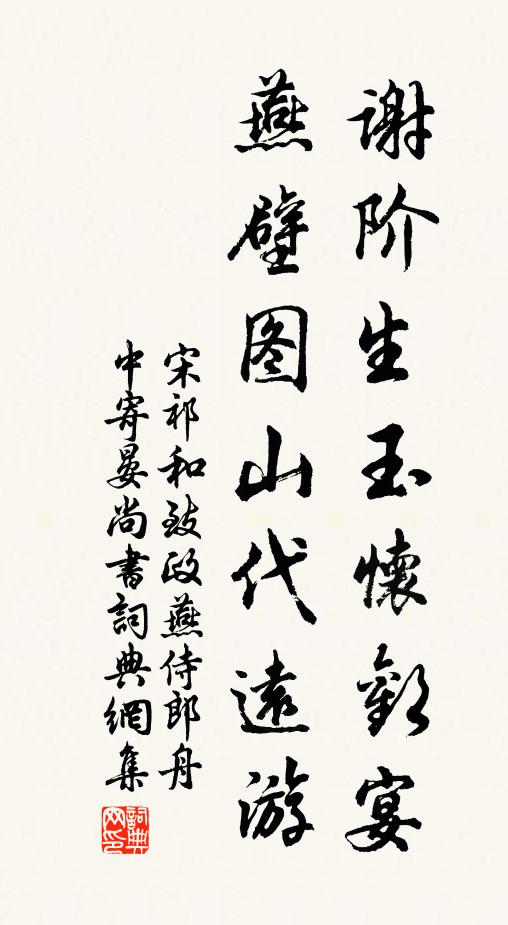 谢阶生玉懷歡宴
燕壁图山代遠游
宋祁和致政燕侍郎舟
中寄晏尚書詞典網集
詞典网印